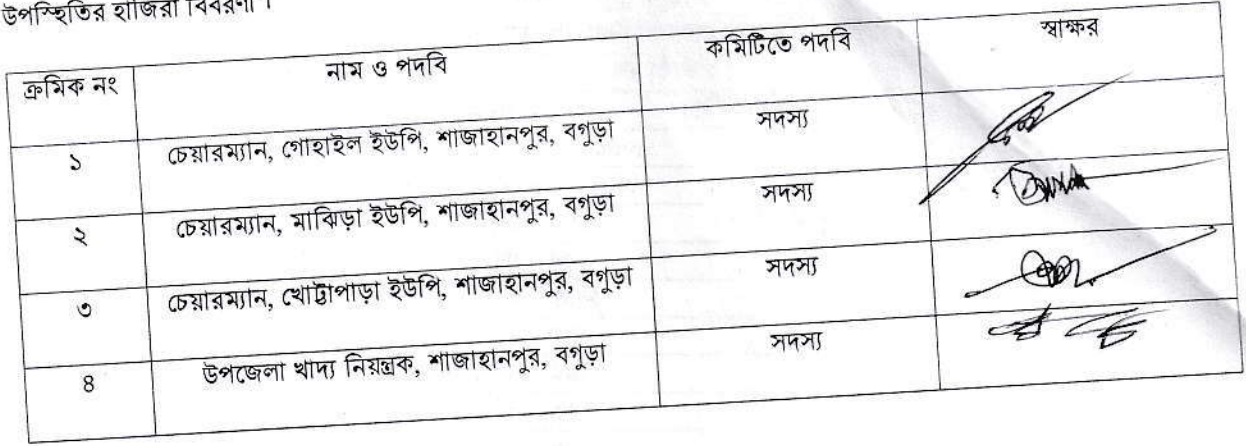 উপস্হিতির হাজিরা বিবরণী ।
ক্রমিক নং নাম ও পদবি কমিটিতে পদবি স্বাক্ষর
১ চেয়ারম্যান, গোহাইল ইউপি, শাজাহানপুর, বগুড়া সদস্য
২ চেয়ারম্যান, মাঝিড়া ইউপি, শাজাহানপুর, বগুড়া সদস্য
৩ চেয়ারম্যান, খোট্টাপাড়া ইউপি, শাজাহানপুর, বগুড়া সদস্য
8 উপজেলা খাদ্য নিয়ন্ত্রক, শাজাহানপুর, বগুড়া সদস্য